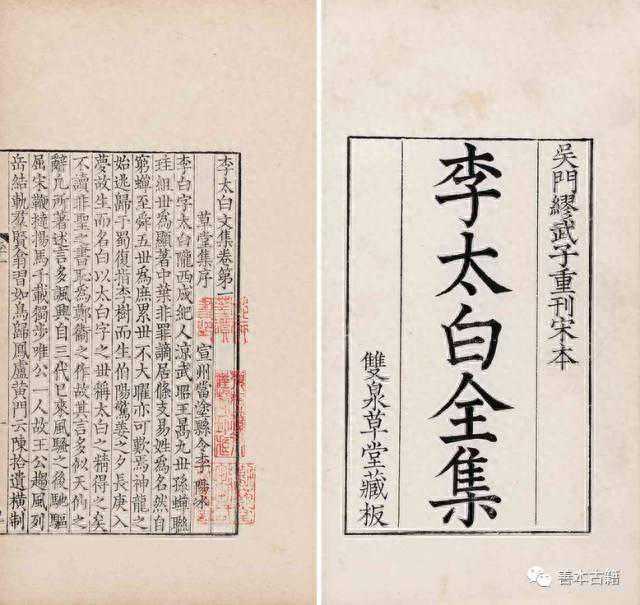 吳門繆武子重刊宋本
李太白全集
雙泉草堂藏板
李太白文集卷第一
草堂集序 宣州當塗縣令李陽冰
李白字太白隴西成紀人涼武昭王暠九世孫蟬聯
珪組世爲顯著中葉非罪謫居條支易姓爲名然自
窮蟬至舜五世爲庶累世不大曜亦可歎焉神龍之
始逃歸于蜀復指李樹而生伯陽驚姜之夕長庚入
夢故生而名白以太白字之世稱太白之精得之矣
不讀非聖之書恥爲鄭衞之作故其言多似天仙之
辭凡所著述言多諷興自三代已來風騷之後馳驅
屈宋鞭撻揚馬千載獨步唯公一人故王公趨風列
岳結軌羣賢翕習如鳥歸鳳盧黃門云陳拾遺橫制
善本古籍